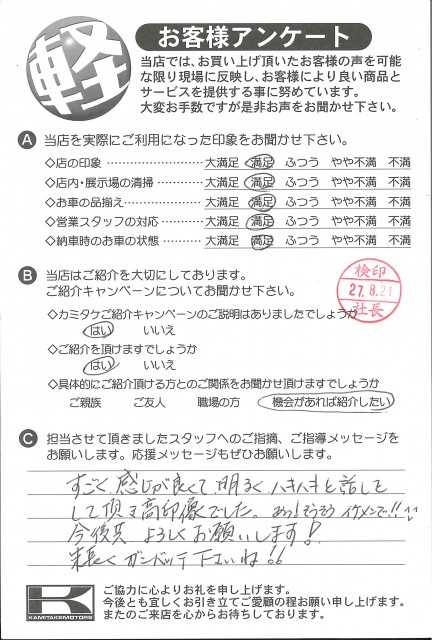 軽
お客様アンケート
当店では、お買い上げ頂いたお客様の声を可能
な限り現場に反映し、お客様により良い商品と
サービスを提供する事に努めています。
大変お手数ですが是非お声をお聞かせ下さい。
A 当店を実際にご利用になった印象をお聞かせ下さい。
◇店の印象 ………………… 大満足 満足 ふつう やや不満 不満
◇店内・展示場の清掃 ……… 大満足 満足 ふつう やや不満 不満
◇お車の品揃え …………… 大満足 満足 ふつう やや不満 不満
◇営業スタッフの対応 ……… 大満足 満足 ふつう やや不満 不満
◇納車時のお車の状態 ……… 大満足 満足 ふつう やや不満 不満
B 当店はご紹介を大切にしてあります。
ご紹介キャンペーンについてお聞かせ下さい。
検印
27.8.21
社長
◇カミタケご紹介キャンペーンのご説明はありましたでしょうか
はい いいえ
◇ご紹介を頂けますでしょうか
はい いいえ
◇具体的にご紹介頂ける方とのご関係をお聞かせ頂けますでしょうか
ご親族 ご友人 職場の方 機会があれば紹介したい
C 担当させて頂きましたスタッフへのご指摘、ご指導メッセージを
お願いします。応援メッセージもぜひお願いします。
すごく感じが良くて明るくハキハキと話して
して頂き高印像でした。あっ!そうそうイケメンで!!
今後共よろしくお願いします!
末長くガンバッテ下さいね!!
K
KAMITAKEMOTORS
ご協力に心よりお礼を申し上げます。
今後とも宜しくお引き立てご愛顧の程お願い申し上げます。
またのご来店を心からお待ちしております。